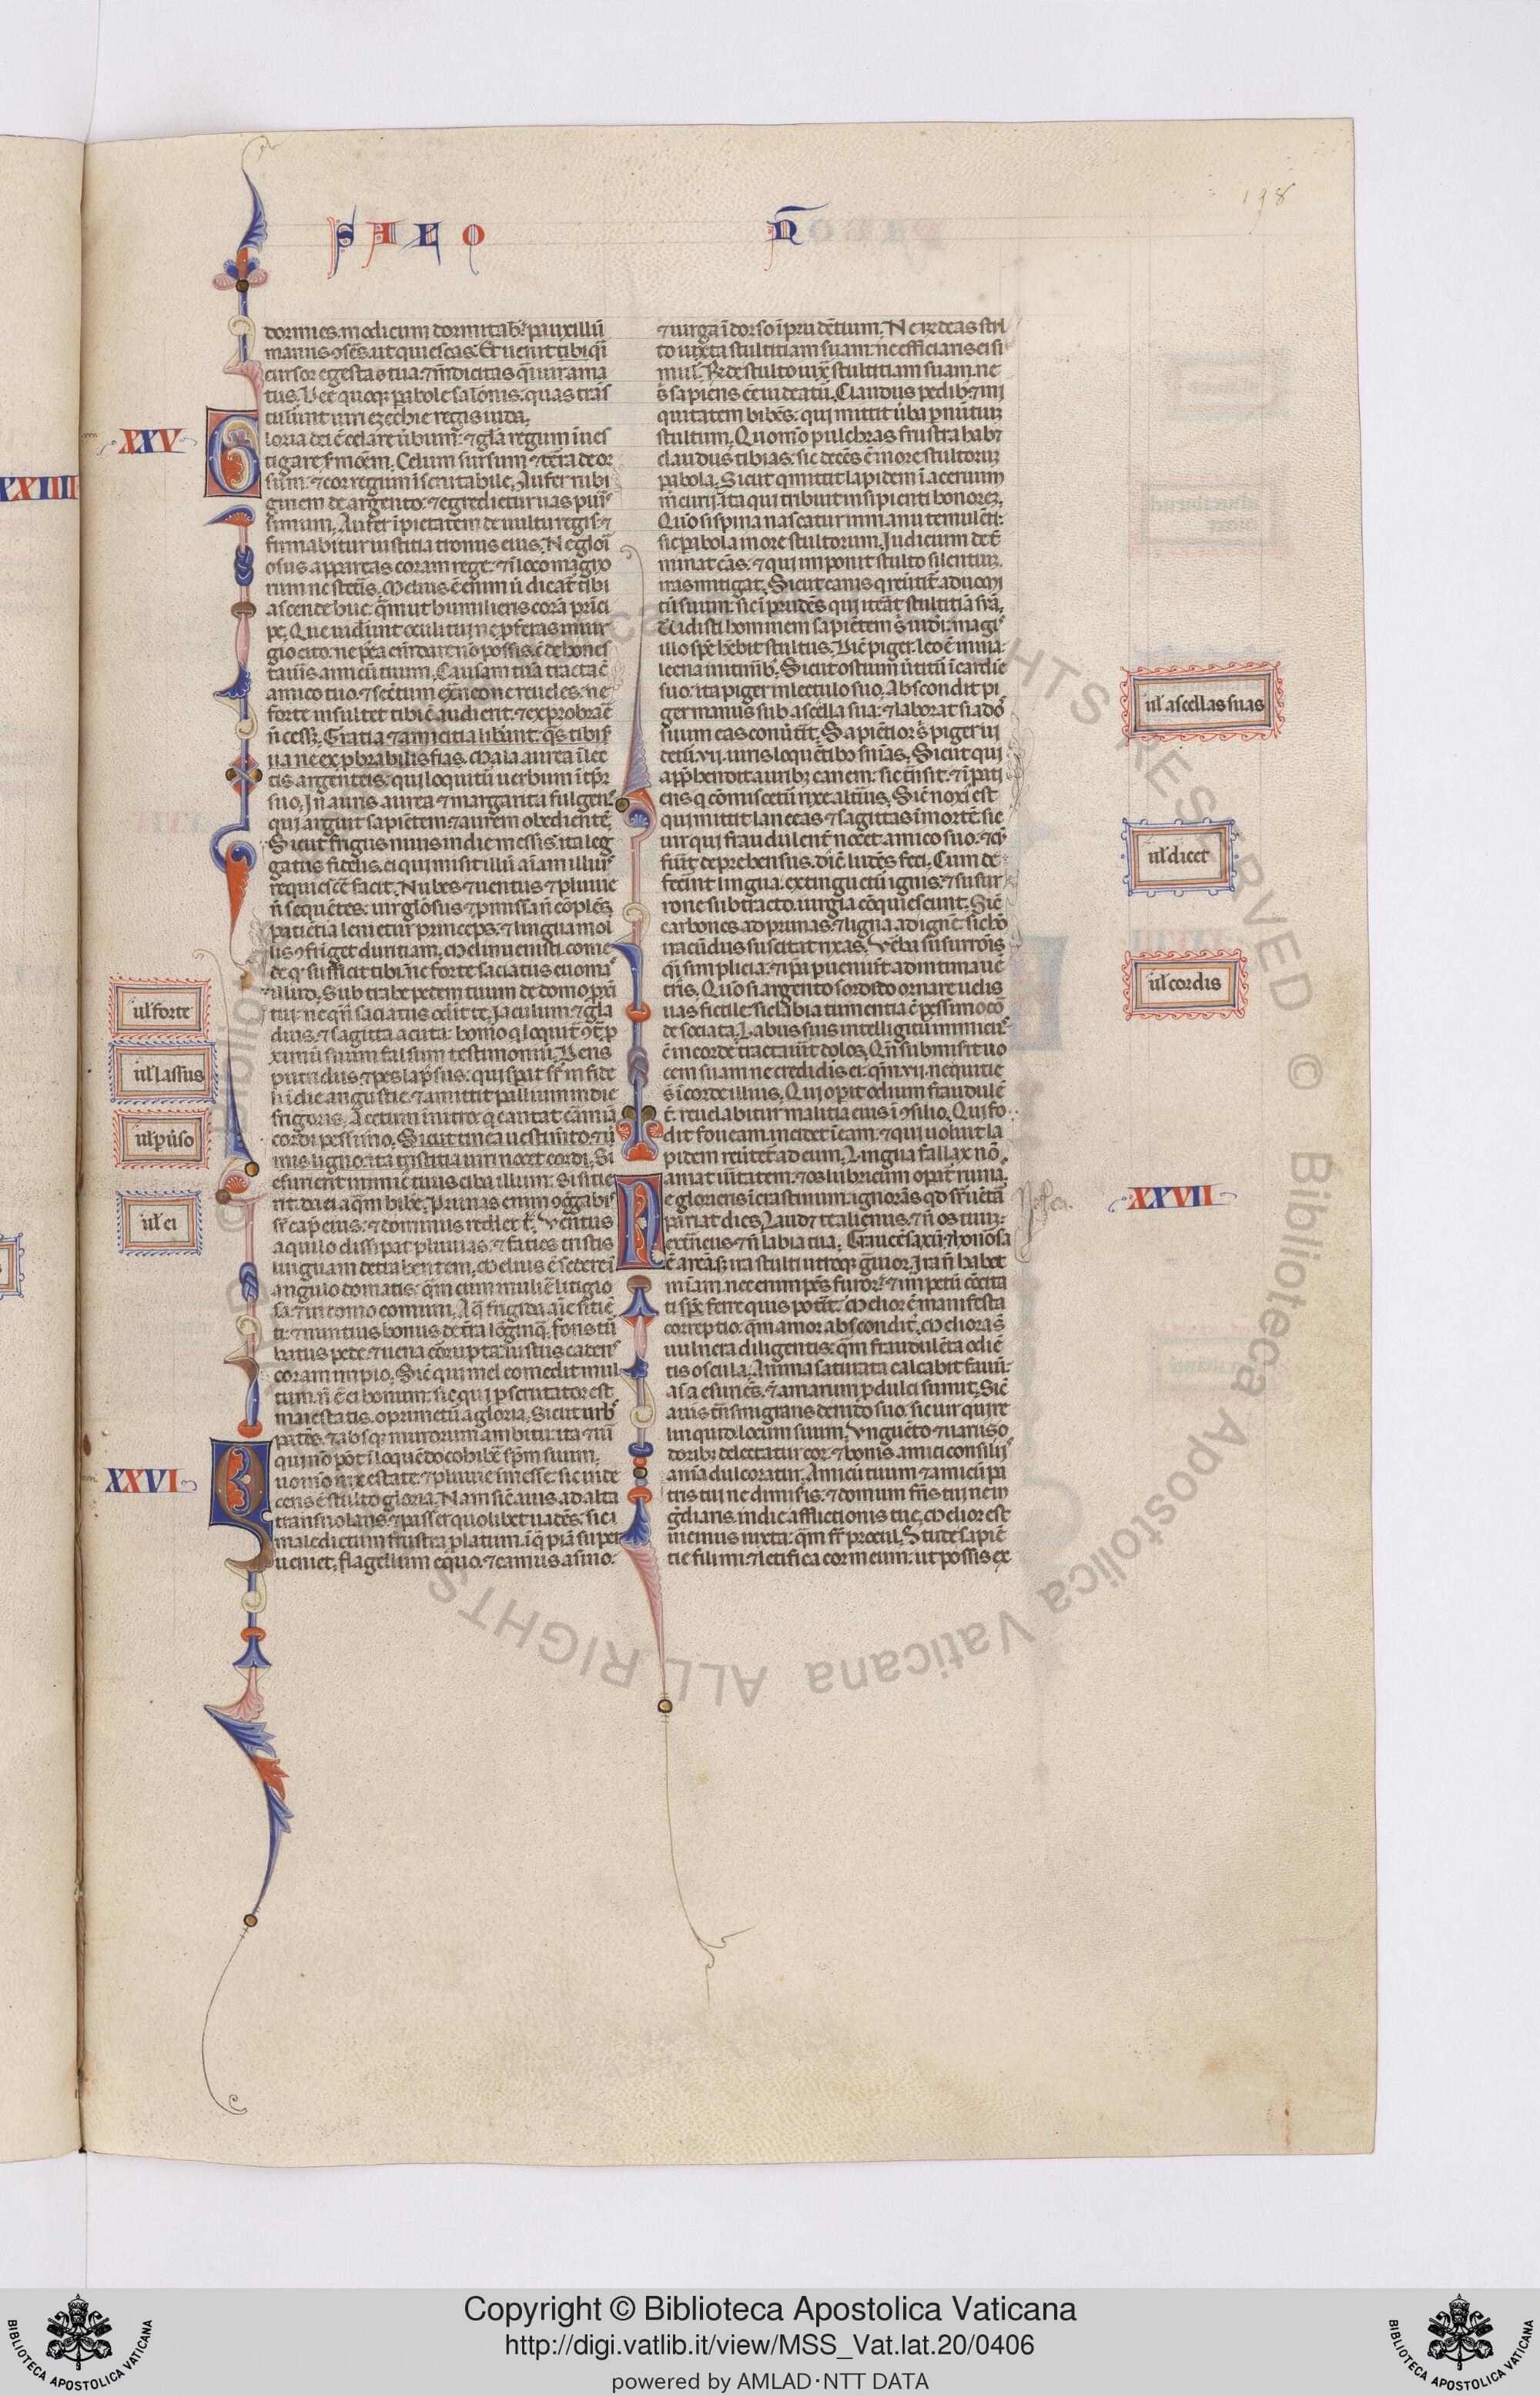 SALO
N̄
198
dormies. modicum dormitab̾. pauxillū
manus ɔseᷤ. ut quiescas. Et ueniet tibi qͣi
cursor egestas tua. ⁊ mēdicitas qͣi uir arma
tus. Hee quoqꝫ pabole salōnis. quas trās
tulerunt uiri ezechie regis iuda.
XXV
Gloria dei ē celare ūbum: ⁊ gl̄a regum inues
tigare sermōem. Celum sursum ⁊ terra deor
sum: ⁊ cor regum īscrutabile. Aufer rubi
ginem de argento: ⁊ egredietur uas puris
simum. Aufer īpietatem de uultu regis: ⁊
firmabitur iusticia tronus eius. Ne glori
osus appareas coram rege: ⁊ ī loco magno
rum ne steteris. Melius ē enim ut dicat̄ tibi
ascende huc: qͣm ut humilieris corā prīci
pe. Que uiderunt oculi tui ne pferas ī iur
gio cito: ne postea emēdare nō possis. cū dehones
taueris amicū tuum. Causam tuā tracta cū
amico tuo. ⁊ secretum extraneo ne reueles: ne
forte insultet tibi cū audierit. ⁊ exprobrare
n̄ cesset. Gratia ⁊ amicitia liberant: qᷤ tibi ser
ua ne exprobrabilis fias. Mala aurea ī lec
tis argenteis. qui loquitur uerbum ī tp̄r
suo. Inauris aurea ⁊ margarita fulgens:
qui arguit sapiētem ⁊ aurem obedientē.
Sicut frigus niuis in die messis. ita leg
gatus fidelis. ei qui misit illū aīam illius
requiescere facit. Nubes ⁊ uentus ⁊ pluuie
n̄ sequētes: uir gl̄osus ⁊ promissa n̄ cōplēs.
Patiētia lenietur princeps. ⁊ lingua mol
lis ɔfringet duritiam. Mel inuenisti. come
de qd̾ sufficit tibi: ne forte saciatus euomas
illud. Subtrahe pedem tuum de domo pxi
tui: ne qn̄ saciatus oderit te. Jaculum ⁊ gla
dius. ⁊ sagitta acuta: homo q̇ loquit̄ ɔtͣ p
ximū suum falsum testimoniū. Dens
putridus ⁊ pes lapsus: qui sperat super infide
li ī die angustie. ⁊ amittit pallium in die
frigoris. Acetum ī nitro: q̇ cantat carmina
cordi pessimo. Sicut tinea uestimēto. ⁊ uer
mis ligno: ita tristitia uiri nocet cordi. Si
esurierit inimicus tuus ciba illum: si sitie
rit. da ei aquam bibere. Prunas enim ɔgregabis
sr̄ caput eius: ⁊ dominus reddet tibi. Ventus
aquilo dissipat pluuias: ⁊ facies tristis
linguam detrahentem. Melius ē sedere ī
angulo domatis: qͣm cum muliere litigio
sa: ⁊ in domo comuni. Aqua frigida aīe sitiē
ti: ⁊ nuntius bonus de terra lōginqua. Fons tur
batus pede. ⁊ uena corrupta: iustus cadens
coram impio. Sicut qui mel comedit mul
tum. n̄ ē ei bonum: sic qui pscrutator est
maiestatis. oprimetur a gloria. Sicut urbs
patens. ⁊ absqꝫ murorum ambitu: ita uir
qui nō pōt ī loquēdo cohibere spm̄ suum.
XXVI
Quomodo nix estate. ⁊ pluuie ī messe: sic inde
cens ē stulto gloria. Nam sicut auis ad alta
transuolans. ⁊ passer quolibet uadens: sic
maledictum frustra platum. ī quempiā super
ueniet. flagellum equo. ⁊ camus asino:
ul̄ forte
ul̄ lassus
ul̄ puso
ul̄ ei
⁊ uirga ī dorso īprudētium. Ne respondeas stul
to iuxta stultitiam suam: ne efficiaris ei si
mul̾. Responde stulto iuxͣ stultitiam suam. ne
sibi sapiens eē uideatur. Claudus pedibꝫ ⁊ ini
quitatem bibēs: qui mittit ūba per nuntium
stultum. Quomodo pulchras frustra habet
claudus tibias: sic decēs ē ī ore stultorum
pabola. Sicut q̇ mittit lapidem ī aceruum
mercurij. ita qui tribuit insipienti honorem.
Quō si spina nascatur in manu temulēti:
sic pabola ī ore stultorum. Judicium deter
minat causas. ⁊ qui imponit stulto silentium.
iras mitigat. Sicut canis q̇ reuertitur ad uomi
tū suum: sic īprudēs qui iterat stultitiā suam.
Uidisti hominem sapiētem sibi uideri: magis
illo spem habebit stultus. Dicit piger. leo ē in uia:
leena in itinerībꝫ. Sicut ostium uertitur ī cardine
suo: ita piger in lectulo suo. Abscondit pi
ger manus sub ascella sua: ⁊ laborat si ad os
suum eas conuerterit. Sapiētior sibi piger ui
detur. vij. uiris loquētibꝫ sn̄ias. Sicut qui
apprehendit auribꝫ canem: sic qui trāsit. ⁊ īpati
ens q̇ cōmiscetur rixe alterius. Sicut noxi᷒ est
qui mittit lanceas ⁊ sagittas ī mortē: sic
uir qui fraudulent̄ nocet amico suo. ⁊ cū
fuerit deprehensus. dicit ludēs feci. Cum de
fecerint ligna. extinguetur ignis: ⁊ susur
rone subtracto. iurgia cōquiescunt. Sicut
carbones ad prunas. ⁊ ligna ad ignē: sic ho
iracūdus suscitat rixas. Verba susurrōis
qͣi simplicia: ⁊ ip̄a pueniūt ad intima uē
tris. Quō si argento sordido ornare uelis
uas fictile: sic labia tumentia cū pessimo cor
de sociata. Labiis suis intelligitur inimicus
cū in corde tractauerit dolos. Qn̄ submiserit uo
cem suam ne credideris ei: qm̄ vij. nequitie
sunt ī corde illius. Qui operit odium fraudulē
ter: reuelabitur malitia eius ī ɔsilio. Qui fo
dit foueam. incidet ī eam: ⁊ qui uoluit la
pidem reuertetur ad eum. Lingua fallax nō
amat ueritatem: ⁊ os lubricum operatur ruinas.
Ne glorieris ī crastinum: ignorās qd superuētura
pariat dies. Laudet te alienus. ⁊ n̄ os tuum:
extraneus ⁊ n̄ labia tua. Graue ē saxū: ⁊ honosa
ē arena: sꝫ ira stulti utroqꝫ grauior. Ira n̄ habet
mīam. nec erumpēs furor: ⁊ impetū cōcita
ti sps̄ ferre quis poterit. Melior ē manifesta
correptio: qͣm amor absconditus. Meliora st̄
uulnera diligentis: qͣm fraudulēta odiē
tis oscula. Anima saturata calcabit fauū:
aīa esuriēs. ⁊ amarum p dulci sumit. Sicut
auis trāsmigrans de nido suo. sic uir qui re
linquid locum suum. Vnguēto ⁊ uariis o
doribꝫ delectatur cor: ⁊ bonis amici consiliis
anīa dulcoratur. Amicū tuum ⁊ amicū pa
tris tui ne dimiseris: ⁊ domum fr̄is tui ne in
grediaris. in die afflictionis tue. Melior est
uicinus iuxta: qͣm fr̄ procul. Stude sapiē
tie fili mi. ⁊ letifica cor meum: ut possis ex
ul̄ ascellas suas
ul̄ dicet
ul̄ cordis
XXVII
XXIIII
© Biblioteca Apostolica Vaticana ALL RIGHTS RESERVED
Copyright © Biblioteca Apostolica Vaticana
http://digi.vatlib.it/view/MSS_Vat.lat.20/0406
powered by AMLAD·NTT DATA
BIBLIOTECA APOSTOLICA VATICANA
BIBLIOTECA APOSTOLICA VATICANA